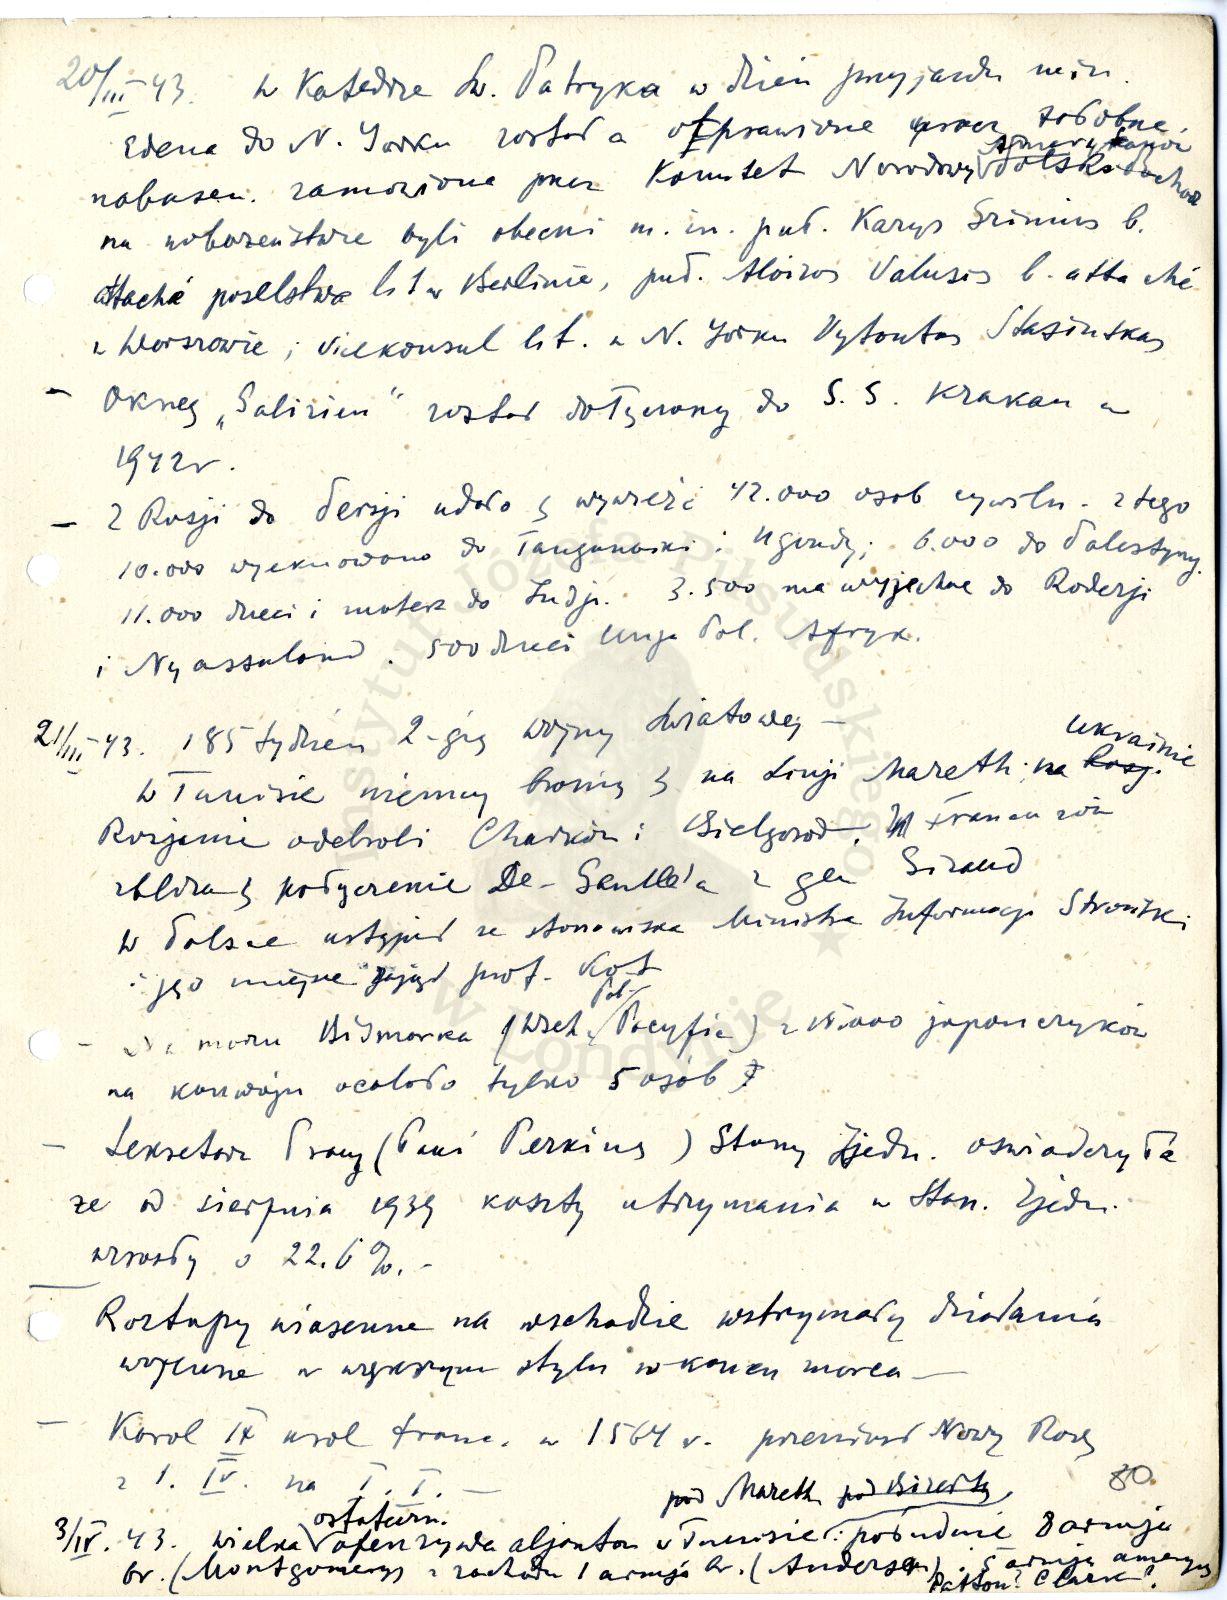 20/III 43. W Katedrze św. Patryka w dzień przyjazdu min.
Edena do N. Jorku została odprawione przez żałobne
nabożeń. zamówione przez Komitet Narodowy Amerykanów Polskich
na nabożeństwie byli obecni m. in. puł. Kazys Grinius b.
attaché poselstwa lit w Berlinie, puł. Aloizos Valusis b. attaché
w Warszawie i vicekonsul lit. w N. Jorku Vytautas Stasinskas
- Okręg „Galizien" został dołączony do S.S. Krakau w
1942 r.
- Z Rosji do Persji udało się wywieźć 42.000 osób cywiln. z tego
10.000 wyekwiowano do Tanganaiki i Ugandy; 6.000 do Palestyny.
11.000 dzieci i matek do Indji. 3.500 ma wyjechać do Rodezji
i Nyassaland. 500 dzieci Unja Poł. Afryk.
21/III 43. 185 tydzień 2-giej wojny światowej -
W Tunisie niemcy bronią się na Linji Mareth; na Ukrainie
Rosjanie odebrali Charków i Biełgorod. W Francuzów
zbliża się połączenie De-Gaulle'a z gen Giraud
W Polsce ustąpił ze stanowiska Ministra Informacji Stroński
i jego miejsce zajął prof. Kot
- Na morzu Bismarka (Wsch. Poł. Pacyfic) z 15.000 japończyków
na konwoju ocalało tylko 5 osób
- Sekretarz Pracy (Pani Perkins) Stany Zjedn. oświadczyła
że od sierpnia 1939 koszty utrzymania w Stan. Zjedn.
wzrosły o 22.6%. -
Roztopy wiosenne na wschodzie wstrzymały działania
wojenne w większym stylu w końcu marca -
- Karol IX król franc. w 1564 r. przeniósł Nowy Rok
z 1. IV. na I. I. -
80
3/IV. 43. wielka ostateczn. ofenzywa aljantów w Tunisie: pod Mareth pod Bizertą, południe 8 armja
br. (Montgomery z zachodu 1 armja br. (Anderson) i 5 armja ameryk
Patton? Clark?